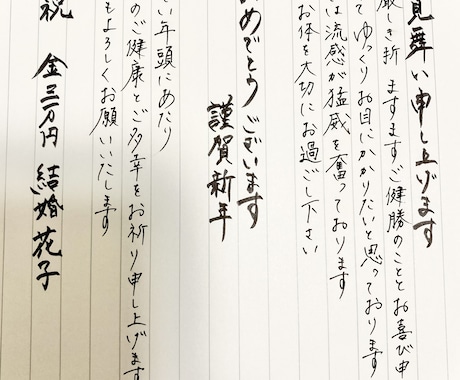 見舞い申し上げます
厳しき折 ますますご健勝のこととお喜び申
てゆっくりお目にかかりたいと思っております
は流感が猛威を奮っております
お体を大切にお過ごし下さい
めでとうございます
謹賀新年
い年頭にあたり
のご健康とご多幸をお祈り申し上げます
もよろしくお願いいたします
祝 金三万円 結婚花子